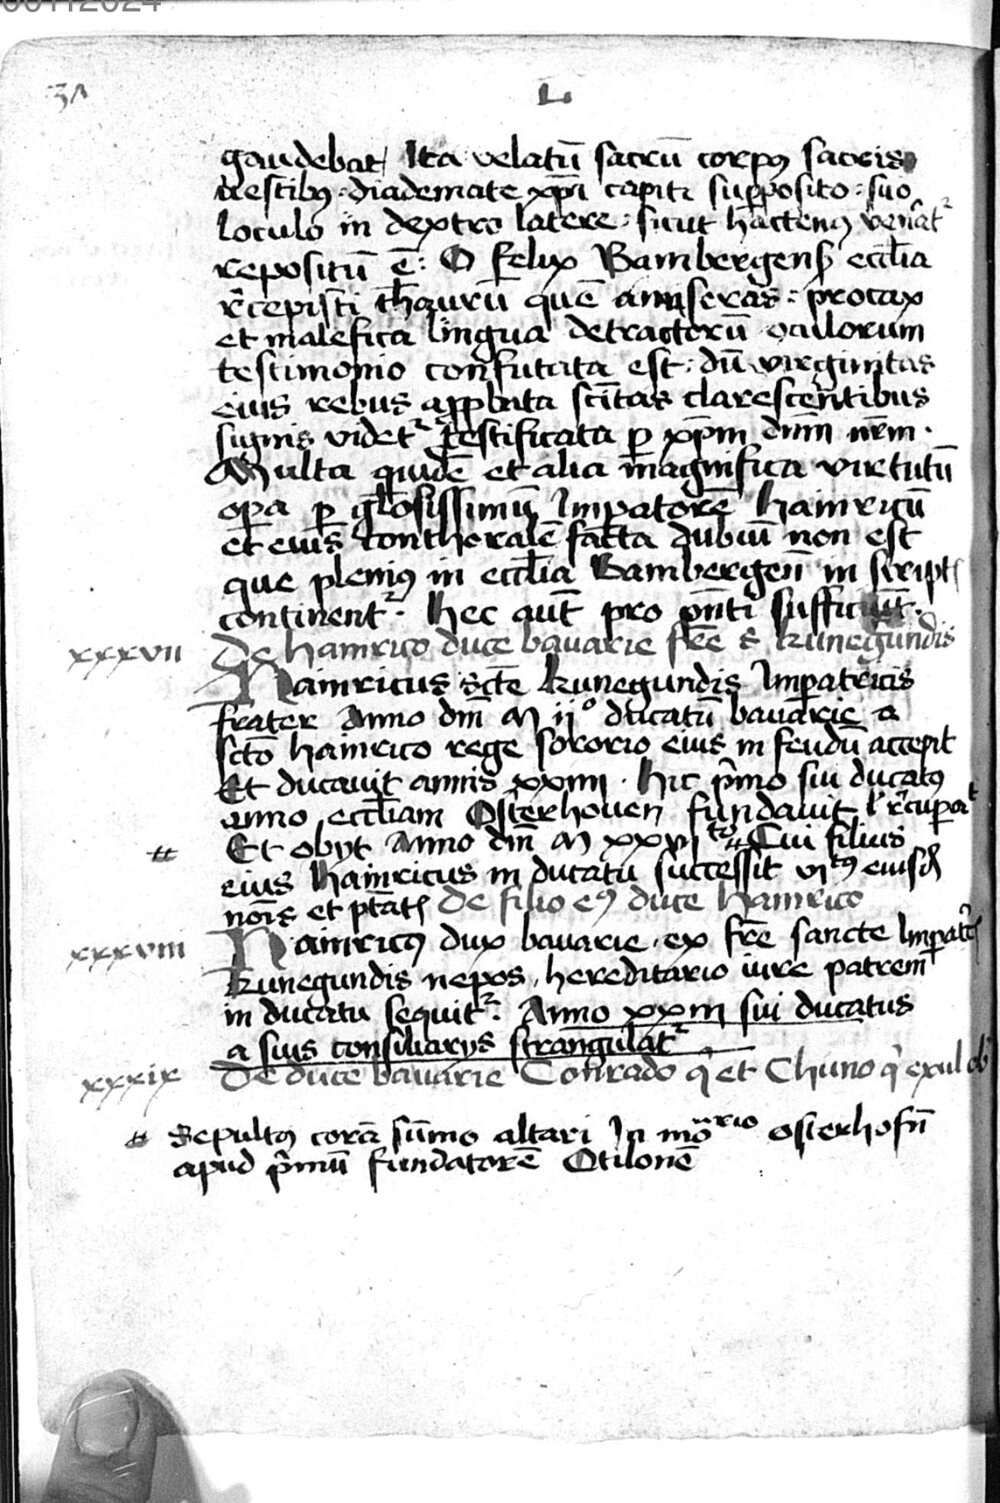 31 L
gaudebat Ita velatū sacrū corpꝰ sacris
vestibꝫ : diademate xp̄i capiti suꝑposito : suo
loculo in dextro latere : sicut hactenꝰ
repositū ē : O felix Bambergenß ecclīa
recepisti thaurū quē amiseras : procax
et malefica lingua detractorū oculorum
testimonio confutata est : dū virginitas
eius rebus apꝓbata sc̄itas clarescentibus
signis videtᷣ testificata ꝑ xp̄m dn̄m nr̄m .
Multa quidē et alia magnifica virtutū
oꝑa ꝑ glōsissimū Imꝑatorē hainricū
et eius conthoralē facta dubiū non est
que plenius in ecclīa Bambergen̄ in script
continentᷣ . hec aut̄ pro pn̄ti sufficiunt .
xxxvii De hainrico duce bavarie fr̄e s kunegundis
Hainricus sc̄te kunegundis Imꝑatricis
frater Anno dn̄i M iiº ducatū bavarie a
sc̄to hainrico rege sororio eius in feudū accepit
Et ducavit annis xxiiii . hic p̄mo sui ducatꝰ
anno eccliam Osterhouen fundavit
Et obyt Anno dn̄i M xxvi ⌗ Cui filius
⌗ eius hainricus in ducatu successit
nōis et De filio eiꝰ duce hainrico
xxxviii Hainricꝰ dux bavarie . ex fr̄e sancte Imꝑatͥcis
kunegundis nepos . hereditario iure patrem
in ducatu sequitᷣ . Anno xxiii sui ducatus
a suis consiliarys strangulatᷣ
xxxix De duce bavarie Conrado q̄ et Chuno qͥ exul ob
⌗ Sepultꝰ corā sūmo altari In mōrio osterhofn̄
apud p̄mū fundatorē Otilonē